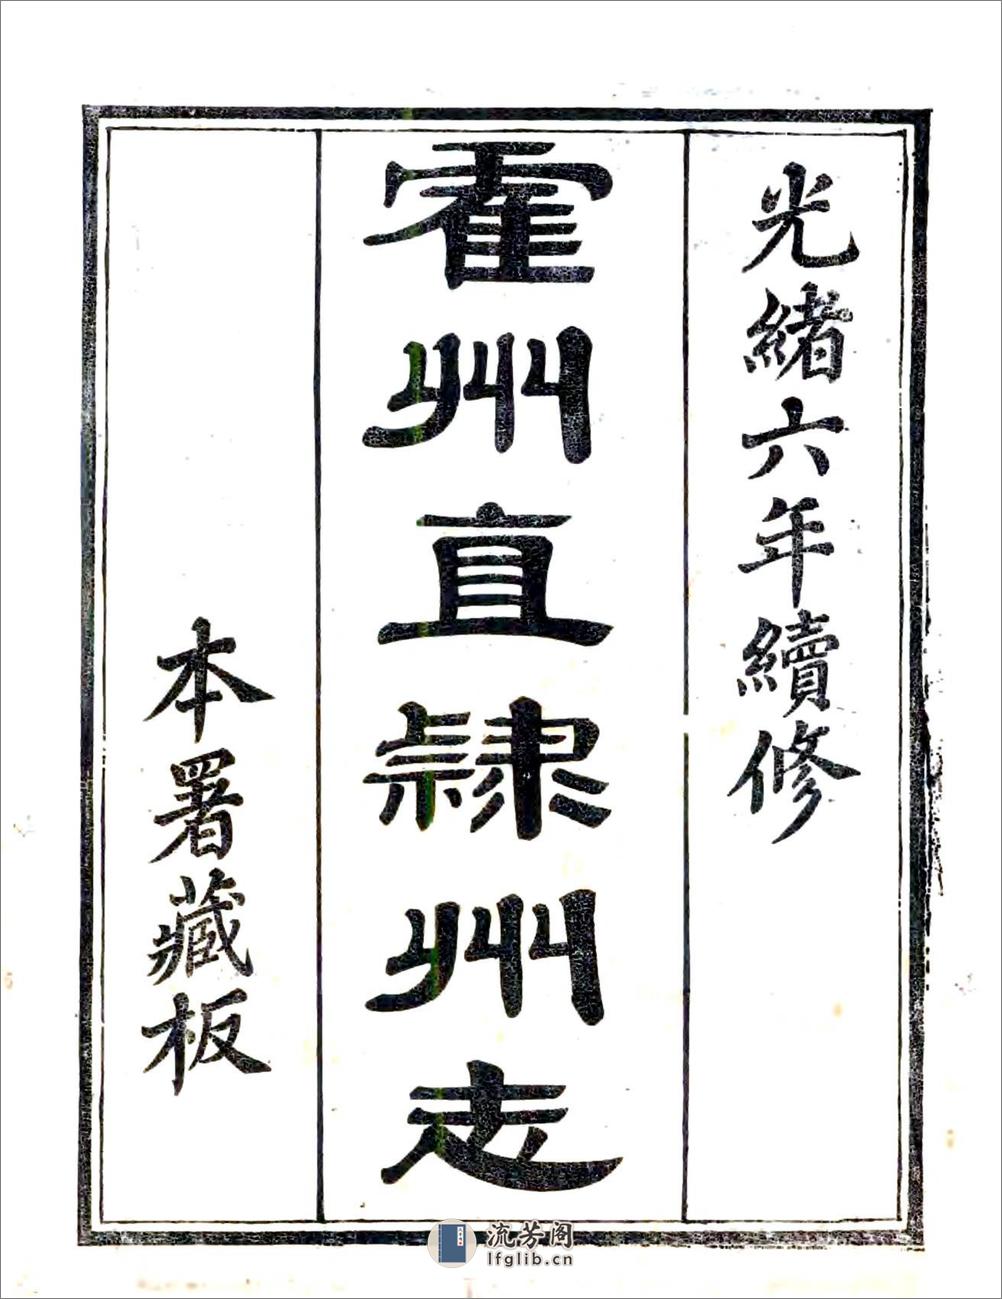 光緒六年續修
霍州直隸州志
本署藏板
流芳阁
lfglib.cn